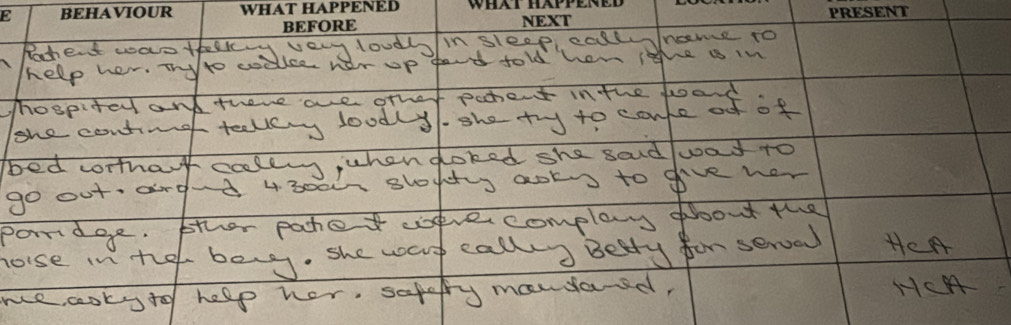 E BEHAVIOUR WHAT HAPPENED BEFORE WHAT HAPPENED NEXT LOCATION PRESENT
Patient was talking very loudly in sleep, calling name to
help her. Try to up and told her, she is in
hospital and there are other patient in the ward.
she continue talking loudly. she try to come out of
bed without calling, when asked she said want to
go out. around 4.30am asking to give her
porridge. other patient were about the
noise in the bay. she was calling Betty for HCA
asky to help her. safety HCA